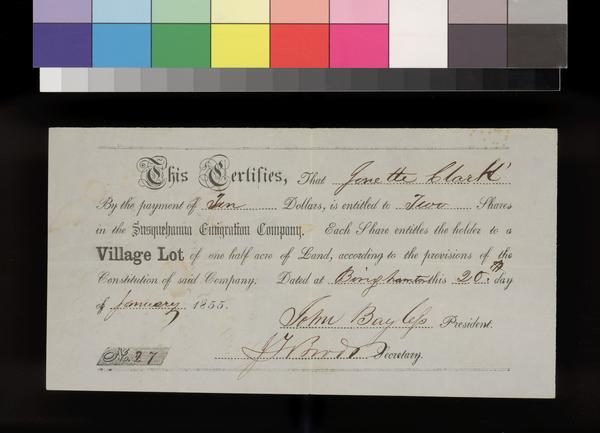 This Certifies, That Jenette Clark
By the payment of Ten Dollars, is entitled to Two Shares
in the Susquehanna Emigration Company. Each Share entitles the holder to a
Village Lot of one half acre of Land, according to the provisions of the
Constitution of said Company. Dated at Binghamton this 20th day
of January 1855.
John Bayless President.
Secretary.
No. 27